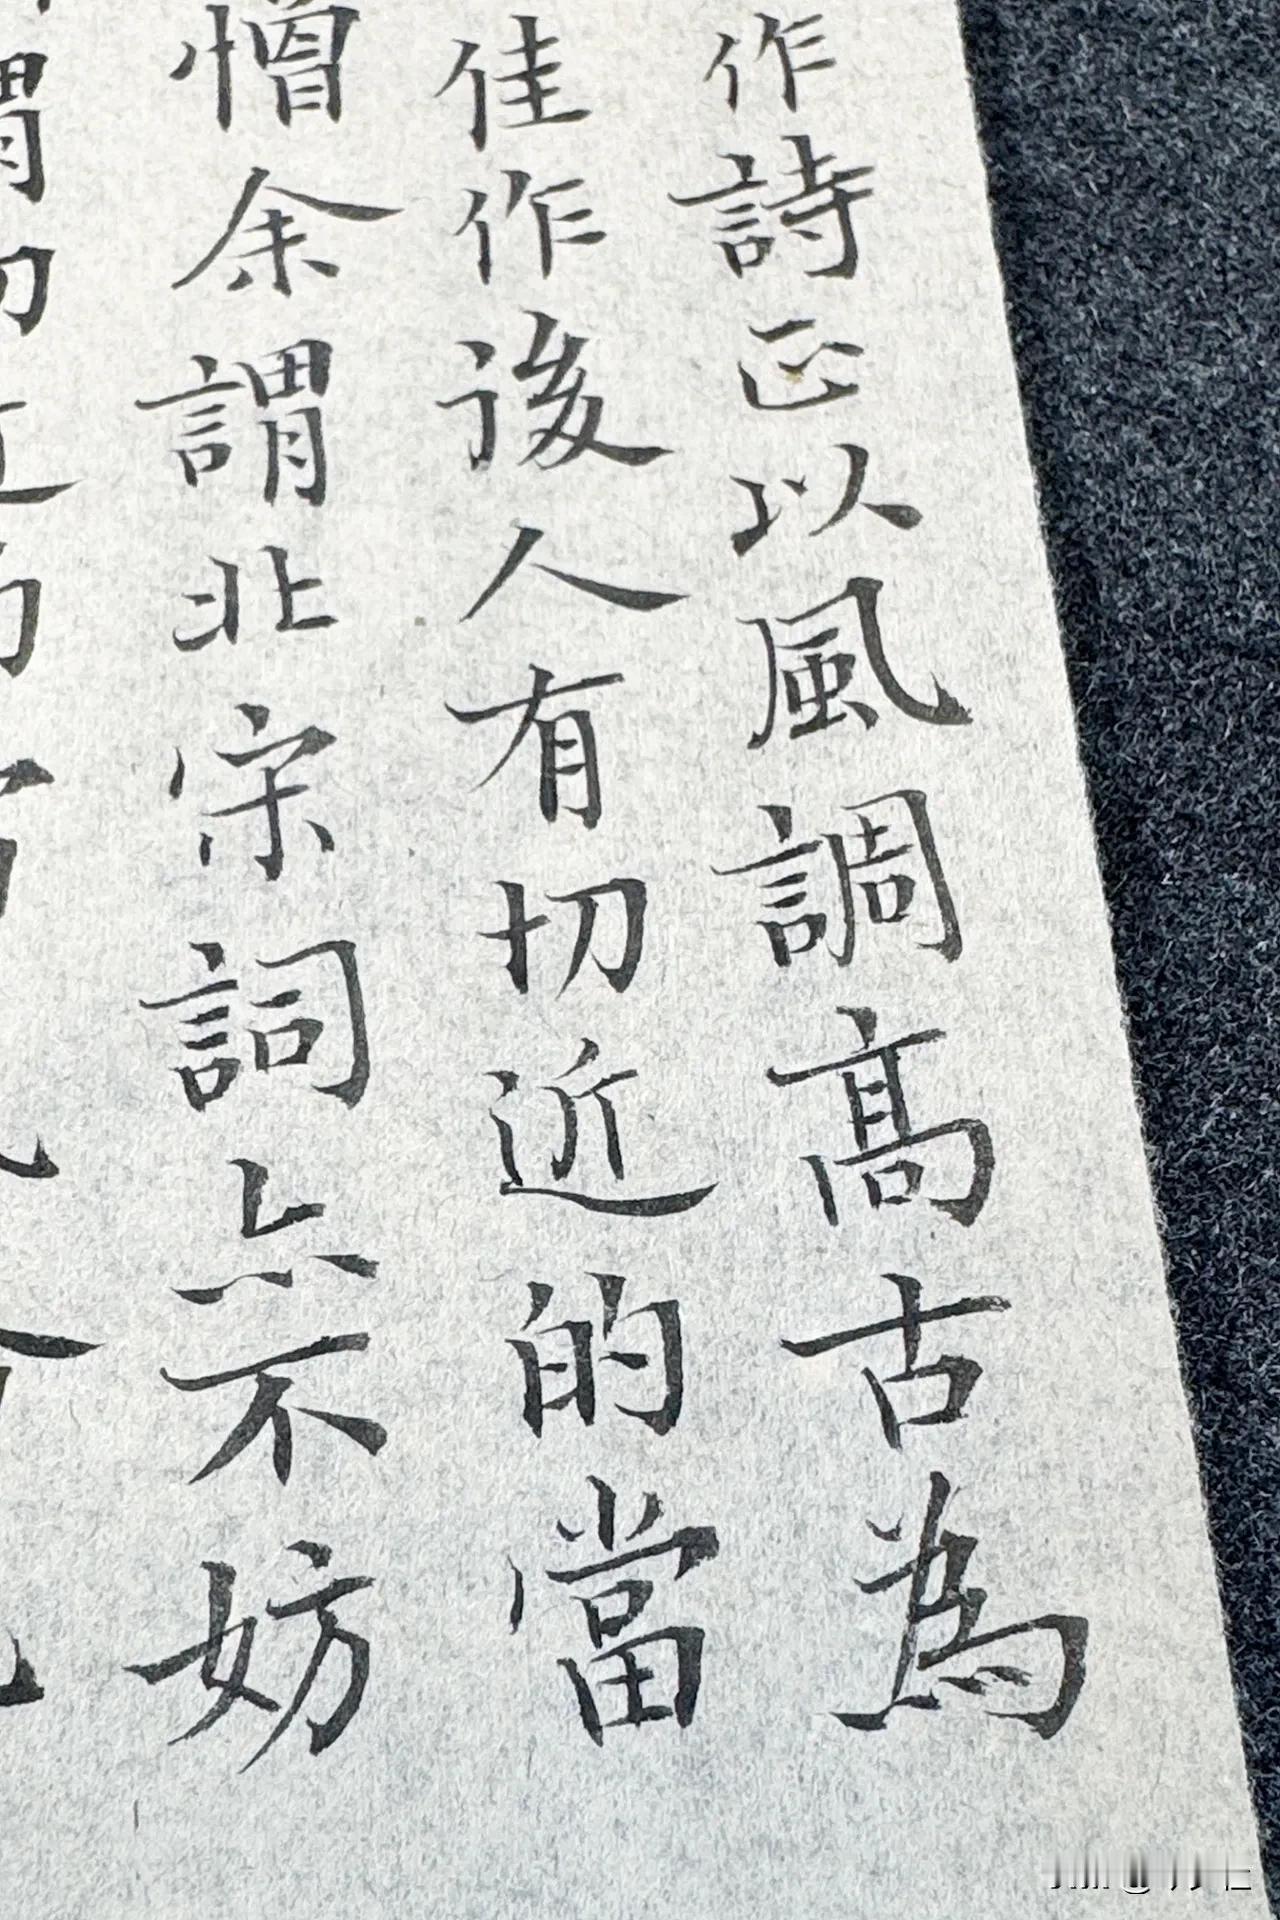 作詩正以風調高古為
佳作後人有切近的當
憎余謂北宋詞亦不妨